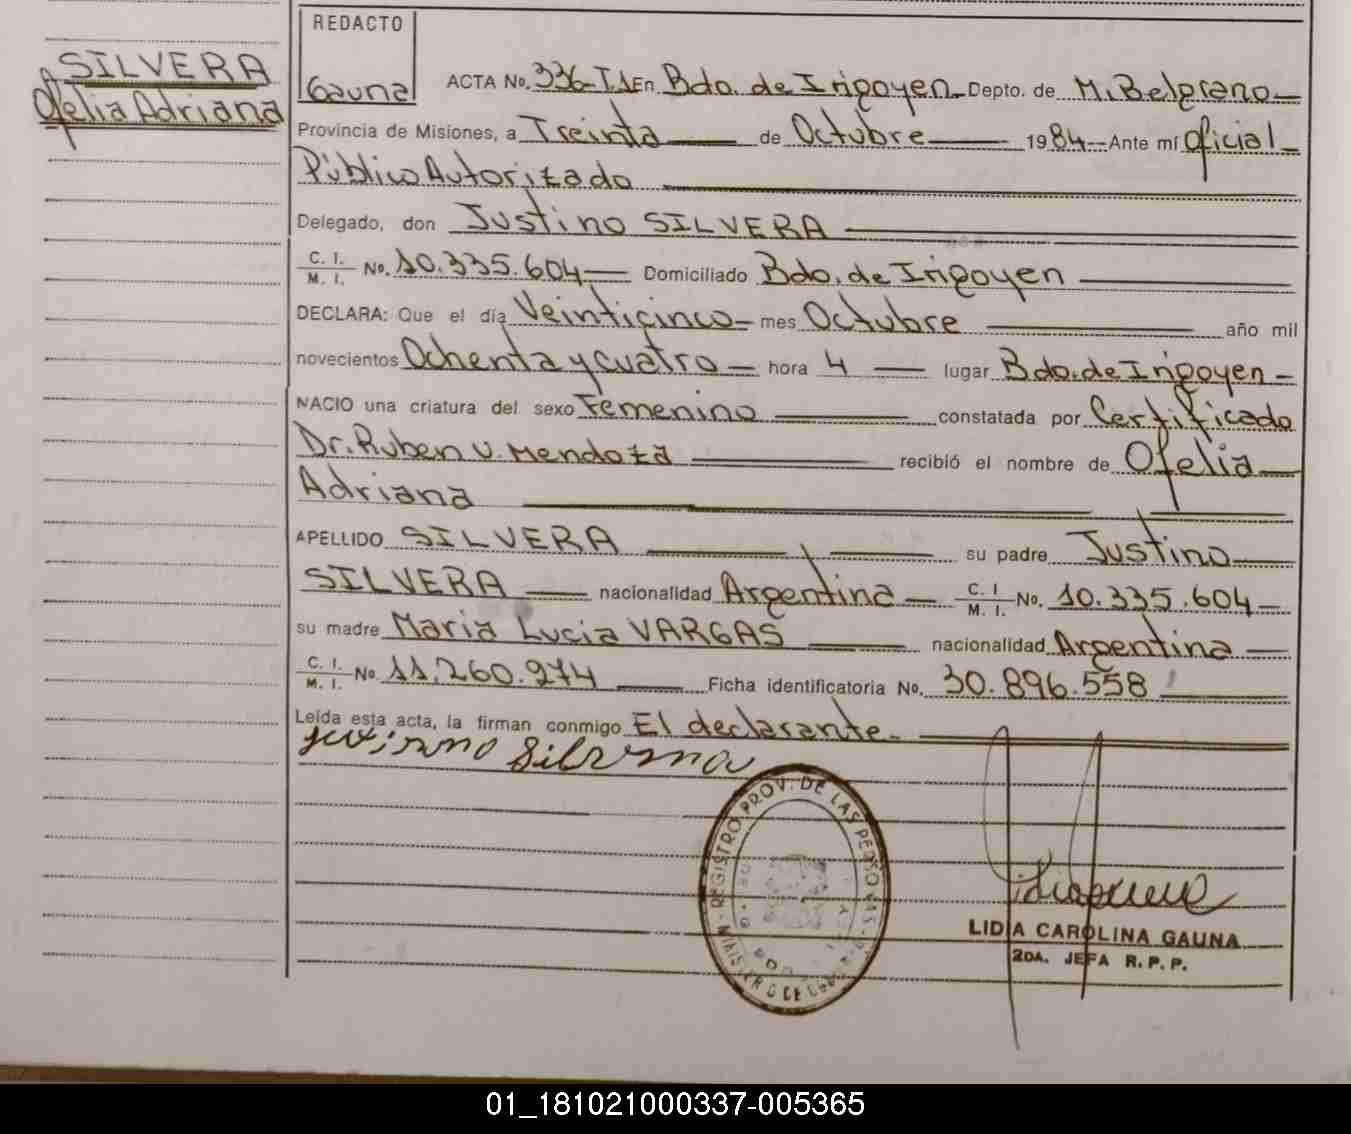 SILVERA
Ofelia Adriana
REDACTO
Gauna
ACTA No. 336-T1 En Bdo. de Irigoyen Depto. de M. Belgrano
Provincia de Misiones, a Treinta de Octubre 1984 Ante mí Oficial
Público Autorizado
Delegado, don Justino SILVERA
C. I. M. I. No. 10.335.604 Domiciliado Bdo. de Irigoyen
DECLARA: Que el día Veinticinco mes Octubre año mil
novecientos Ochenta y cuatro hora 4 lugar Bdo. de Irigoyen
NACIO una criatura del sexo Femenino constatada por Certificado
Dr. Ruben V. Mendoza recibió el nombre de Ofelia
Adriana
APELLIDO SILVERA su padre Justino
SILVERA nacionalidad Argentina C. I. M. I. No. 10.335.604
su madre Maria Lucia VARGAS nacionalidad Argentina
C. I. M. I. No. 11.260.974 Ficha identificatoria No. 30.896.558
Leída esta acta, la firman conmigo El declarante.
REGISTRO PROV. DE LAS PERSONAS
LIDIA CAROLINA GAUNA
2DA. JEFA R. P. P.
01_181021000337-005365